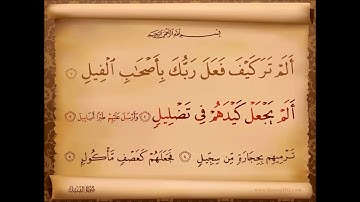 بِسْمِ اللَّهِ الرَّحْمَٰنِ الرَّحِيمِ
أَلَمْ تَرَ كَيْفَ فَعَلَ رَبُّكَ بِأَصْحَابِ الْفِيلِ ١
أَلَمْ يَجْعَلْ كَيْدَهُمْ فِي تَضْلِيلٍ ٢ وَأَرْسَلَ عَلَيْهِمْ طَيْرًا أَبَابِيلَ ٣
تَرْمِيهِم بِحِجَارَةٍ مِّن سِجِّيلٍ ٤ فَجَعَلَهُمْ كَعَصْفٍ مَّأْكُولٍ ٥